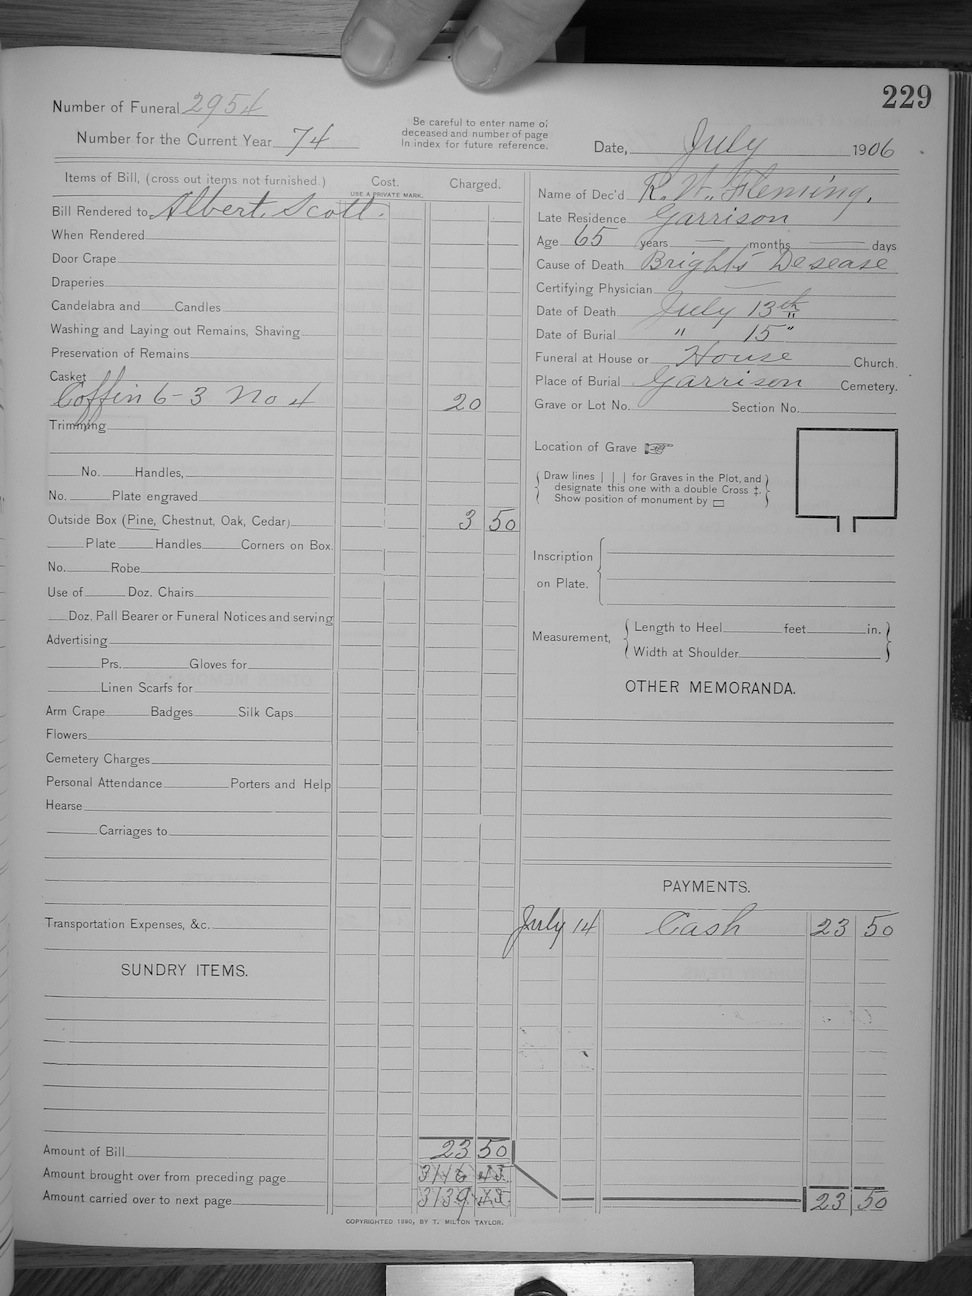 229
Number of Funeral 2954
Number for the Current Year 74
Be careful to enter name of
deceased and number of page
In index for future reference.
Date, July 1906
Items of Bill, (cross out items not furnished.) Cost. Charged.
USE A PRIVATE MARK.
Bill Rendered to Albert Scott.
When Rendered
Door Crape
Draperies
Candelabra and Candles
Washing and Laying out Remains, Shaving
Preservation of Remains
Casket
Coffin 6-3 No 4 20
Trimming
No. Handles,
No. Plate engraved
Outside Box (Pine, Chestnut, Oak, Cedar) 3 50
Plate Handles Corners on Box
No. Robe
Use of Doz. Chairs
Doz. Pall Bearer or Funeral Notices and serving
Advertising
Prs. Gloves for
Linen Scarfs for
Arm Crape Badges Silk Caps
Flowers
Cemetery Charges
Personal Attendance Porters and Help
Hearse
Carriages to
Transportation Expenses, &c.
SUNDRY ITEMS.
Amount of Bill 23 50
Amount brought over from preceding page
Amount carried over to next page
Name of Dec'd R. W. Fleming.
Late Residence Garrison
Age 65 years — months — days
Cause of Death Brights Desease
Certifying Physician
Date of Death July 13th
Date of Burial " 15"
Funeral at House or House Church.
Place of Burial Garrison Cemetery.
Grave or Lot No. Section No.
Location of Grave
Draw lines | | | for Graves in the Plot, and
designate this one with a double Cross ‡.
Show position of monument by ▭
Inscription
on Plate.
Measurement, Length to Heel feet in.
Width at Shoulder
OTHER MEMORANDA.
PAYMENTS.
July 14 Cash 23 50
23 50
COPYRIGHTED 1890, BY T. MILTON TAYLOR.